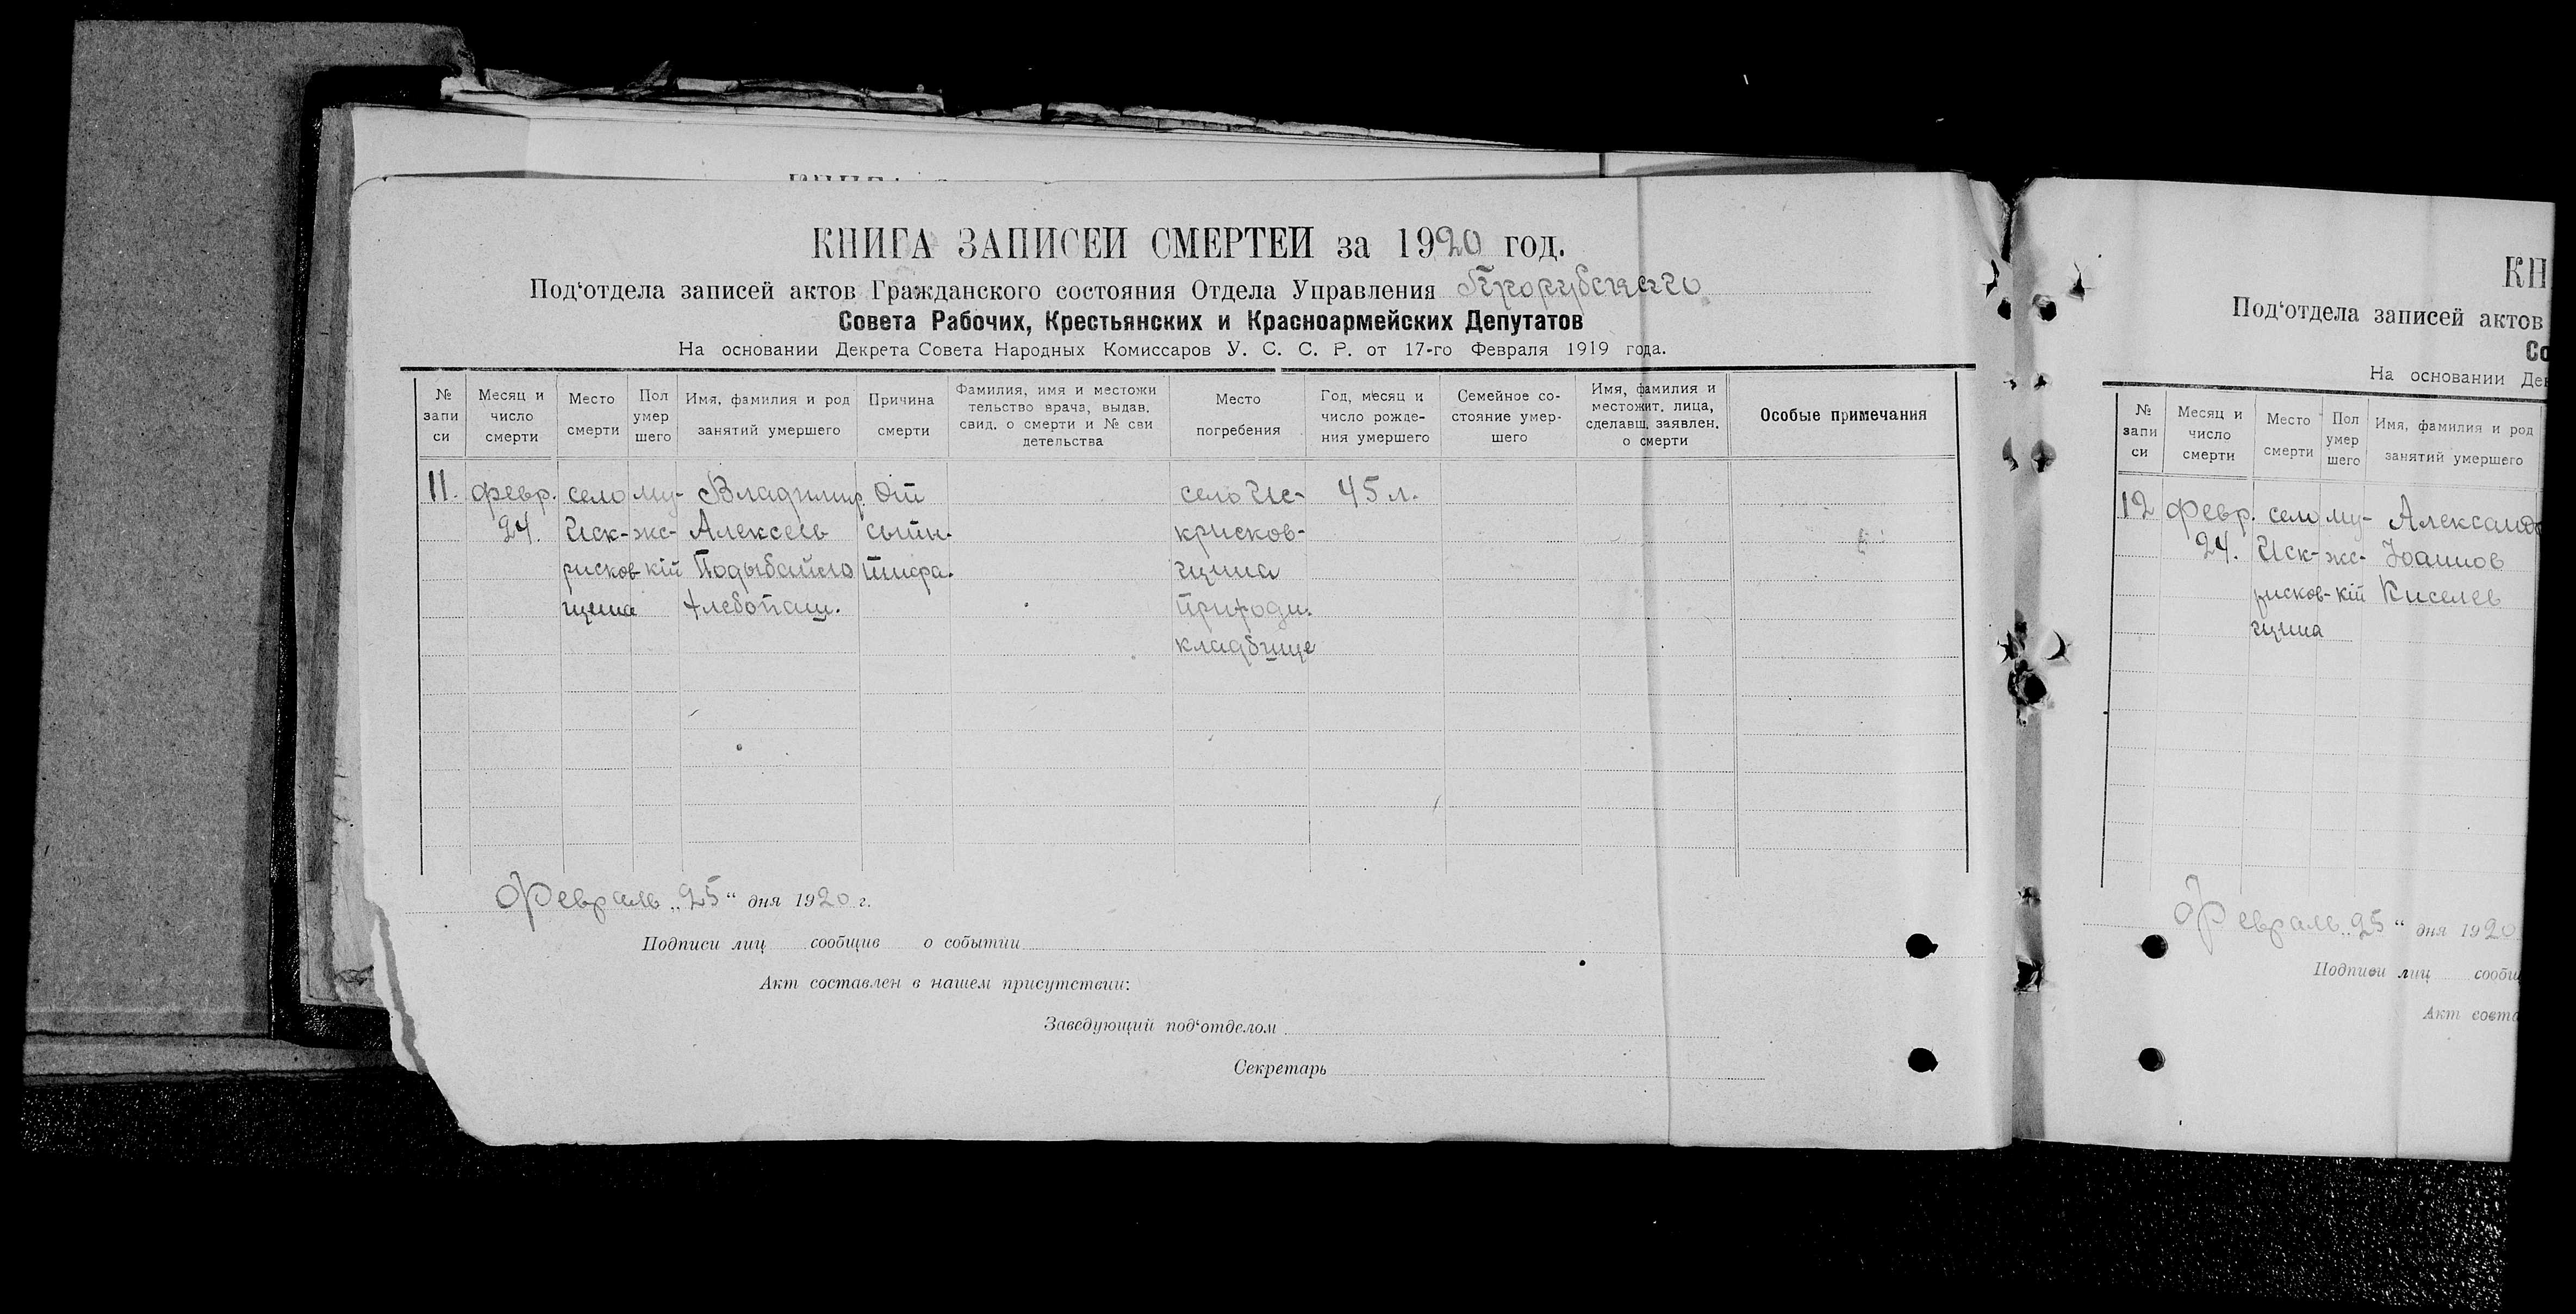 КНИГА ЗАПИСЕЙ СМЕРТЕЙ за 1920 год.
Под‘отдела записей актов Гражданского состояния Отдела Управления
Совета Рабочих, Крестьянских и Красноармейских Депутатов
На основании Декрета Совета Народных Комиссаров У. С. С. Р. от 17-го Февраля 1919 года.
№ запи си
Месяц и число смерти
Место смерти
Пол умер шего
Имя, фамилия и род занятий умершего
Причина смерти
Фамилия, имя и местожи тельство врача, выдав. свид. о смерти и № сви детельства
Место погребения
Год, месяц и число рожде- ния умершего
Семейное со- стояние умер- шего
Имя, фамилия и местожит. лица, сделавш. заявлен. о смерти
Особые примечания
11. февр. село му- Владимир. От село Ис- 45 л.
24. Иск- жс- Алексеев сыпн. крисков-
рисков- кій тифа. щина
щина хлебопаш. приходи.
кладбище
Февраль „25“ дня 1920 г.
Подписи лиц сообщив о событии
Акт составлен в нашем присутствии:
Заведующий под‘отделом
Секретарь
КН
Под‘отдела записей актов
Со
На основании Де
№ запи си
Месяц и число смерти
Место смерти
Пол умер шего
Имя, фамилия и род занятий умершего
12 февр. село му- Александ
24. Иск- жс- Іоанов
рисков- кій Киселев
щина
Февраль „25“ дня 1920
Подписи лиц сообщ
Акт соста